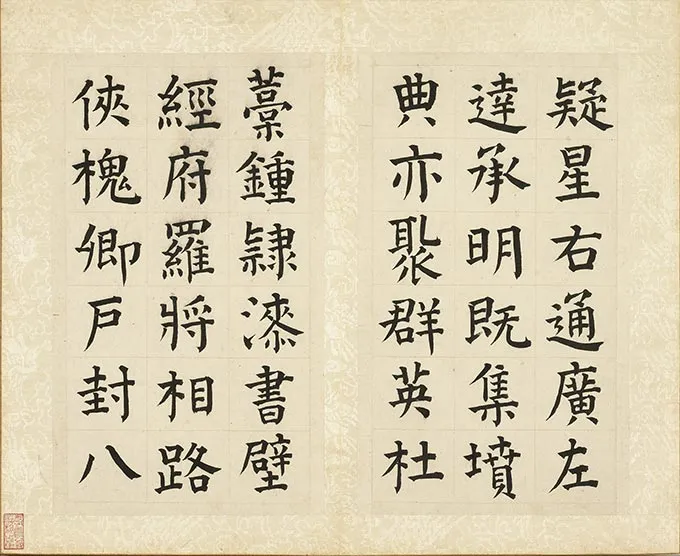 疑星右通廣左
達承明既集墳
典亦聚群英杜
藁鍾隸漆書壁
經府羅將相路
俠槐卿戶封八